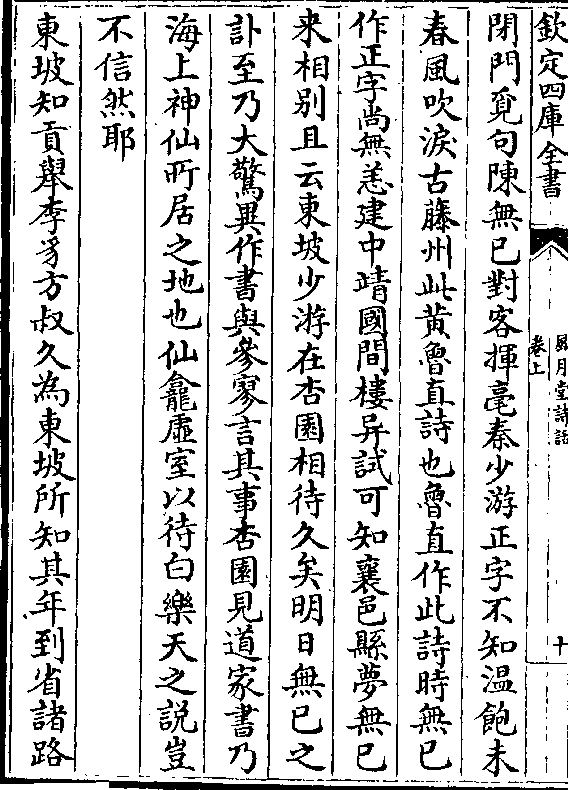 欽定四庫全書
風月堂詩話
卷上
十
閉門覓句陳無已對客揮毫秦少游正字不知溫飽未
春風吹淚古藤州此黄魯直詩也魯直作此詩時無已
作正字尚無恙建中靖國間樓异試可知襄邑縣夢無已
来相别且云東坡少游在杏園相待久矣明日無已之
訃至乃大驚異作書與參寥言其事杏園見道家書乃
海上神仙所居之地也仙龕虛室以待白樂天之説豈
不信然耶
東坡知貢舉李豸方叔久為東坡所知其年到省諸路